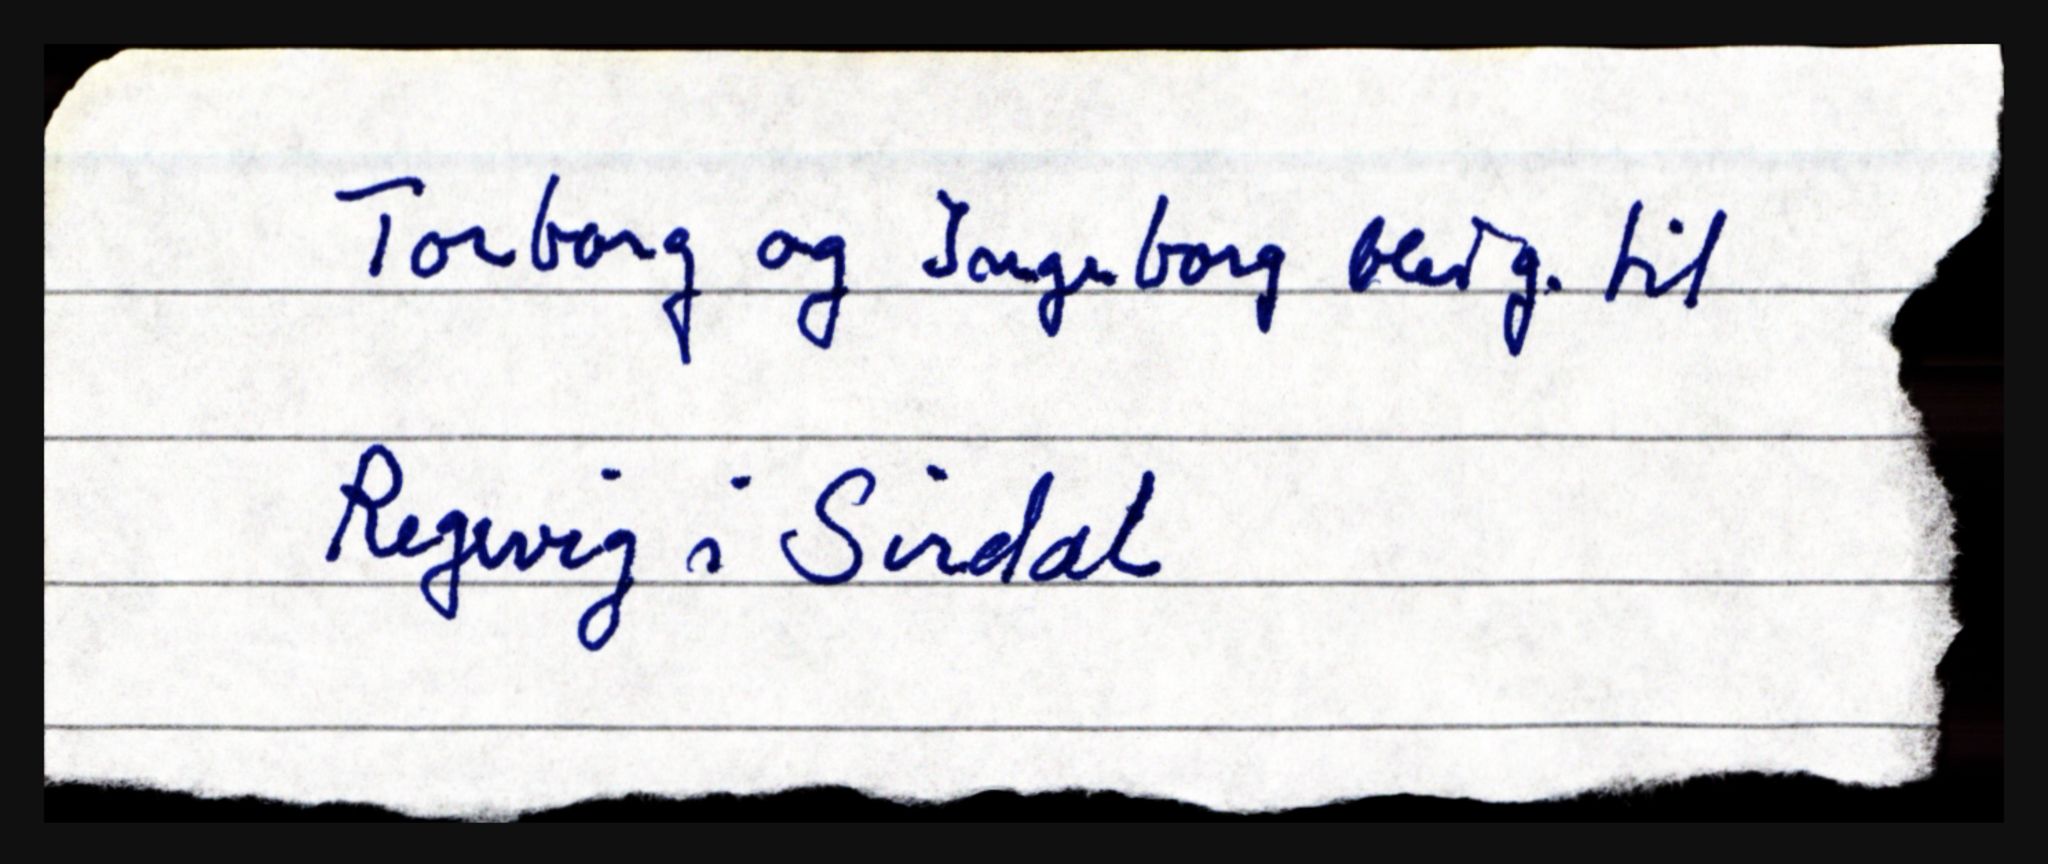 Torborg og Ingeborg blei g. til
Regevig i Sirdal